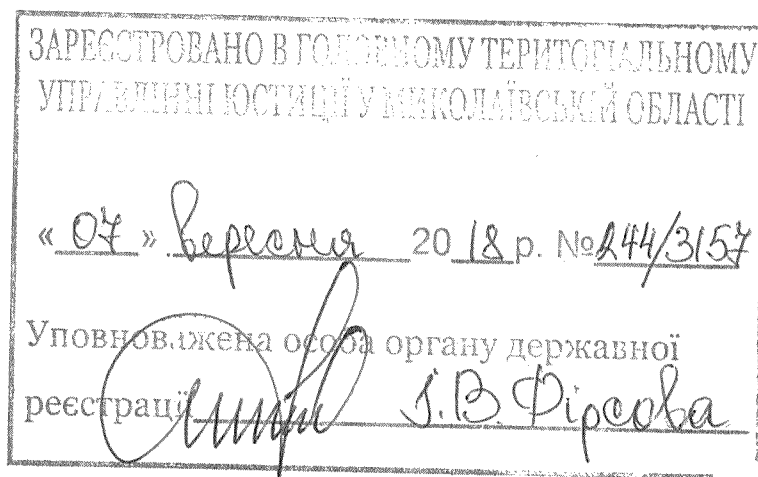 ЗАРЕЄСТРОВАНО В ГОЛОВНОМУ ТЕРИТОРІАЛЬНОМУ
УПРАВЛІННІ ЮСТИЦІЇ У МИКОЛАЇВСЬКІЙ ОБЛАСТІ
« 07 » вересня 20 18 р. № 244/3157
Уповноважена особа органу державної
реєстрації І.В. Фірсова